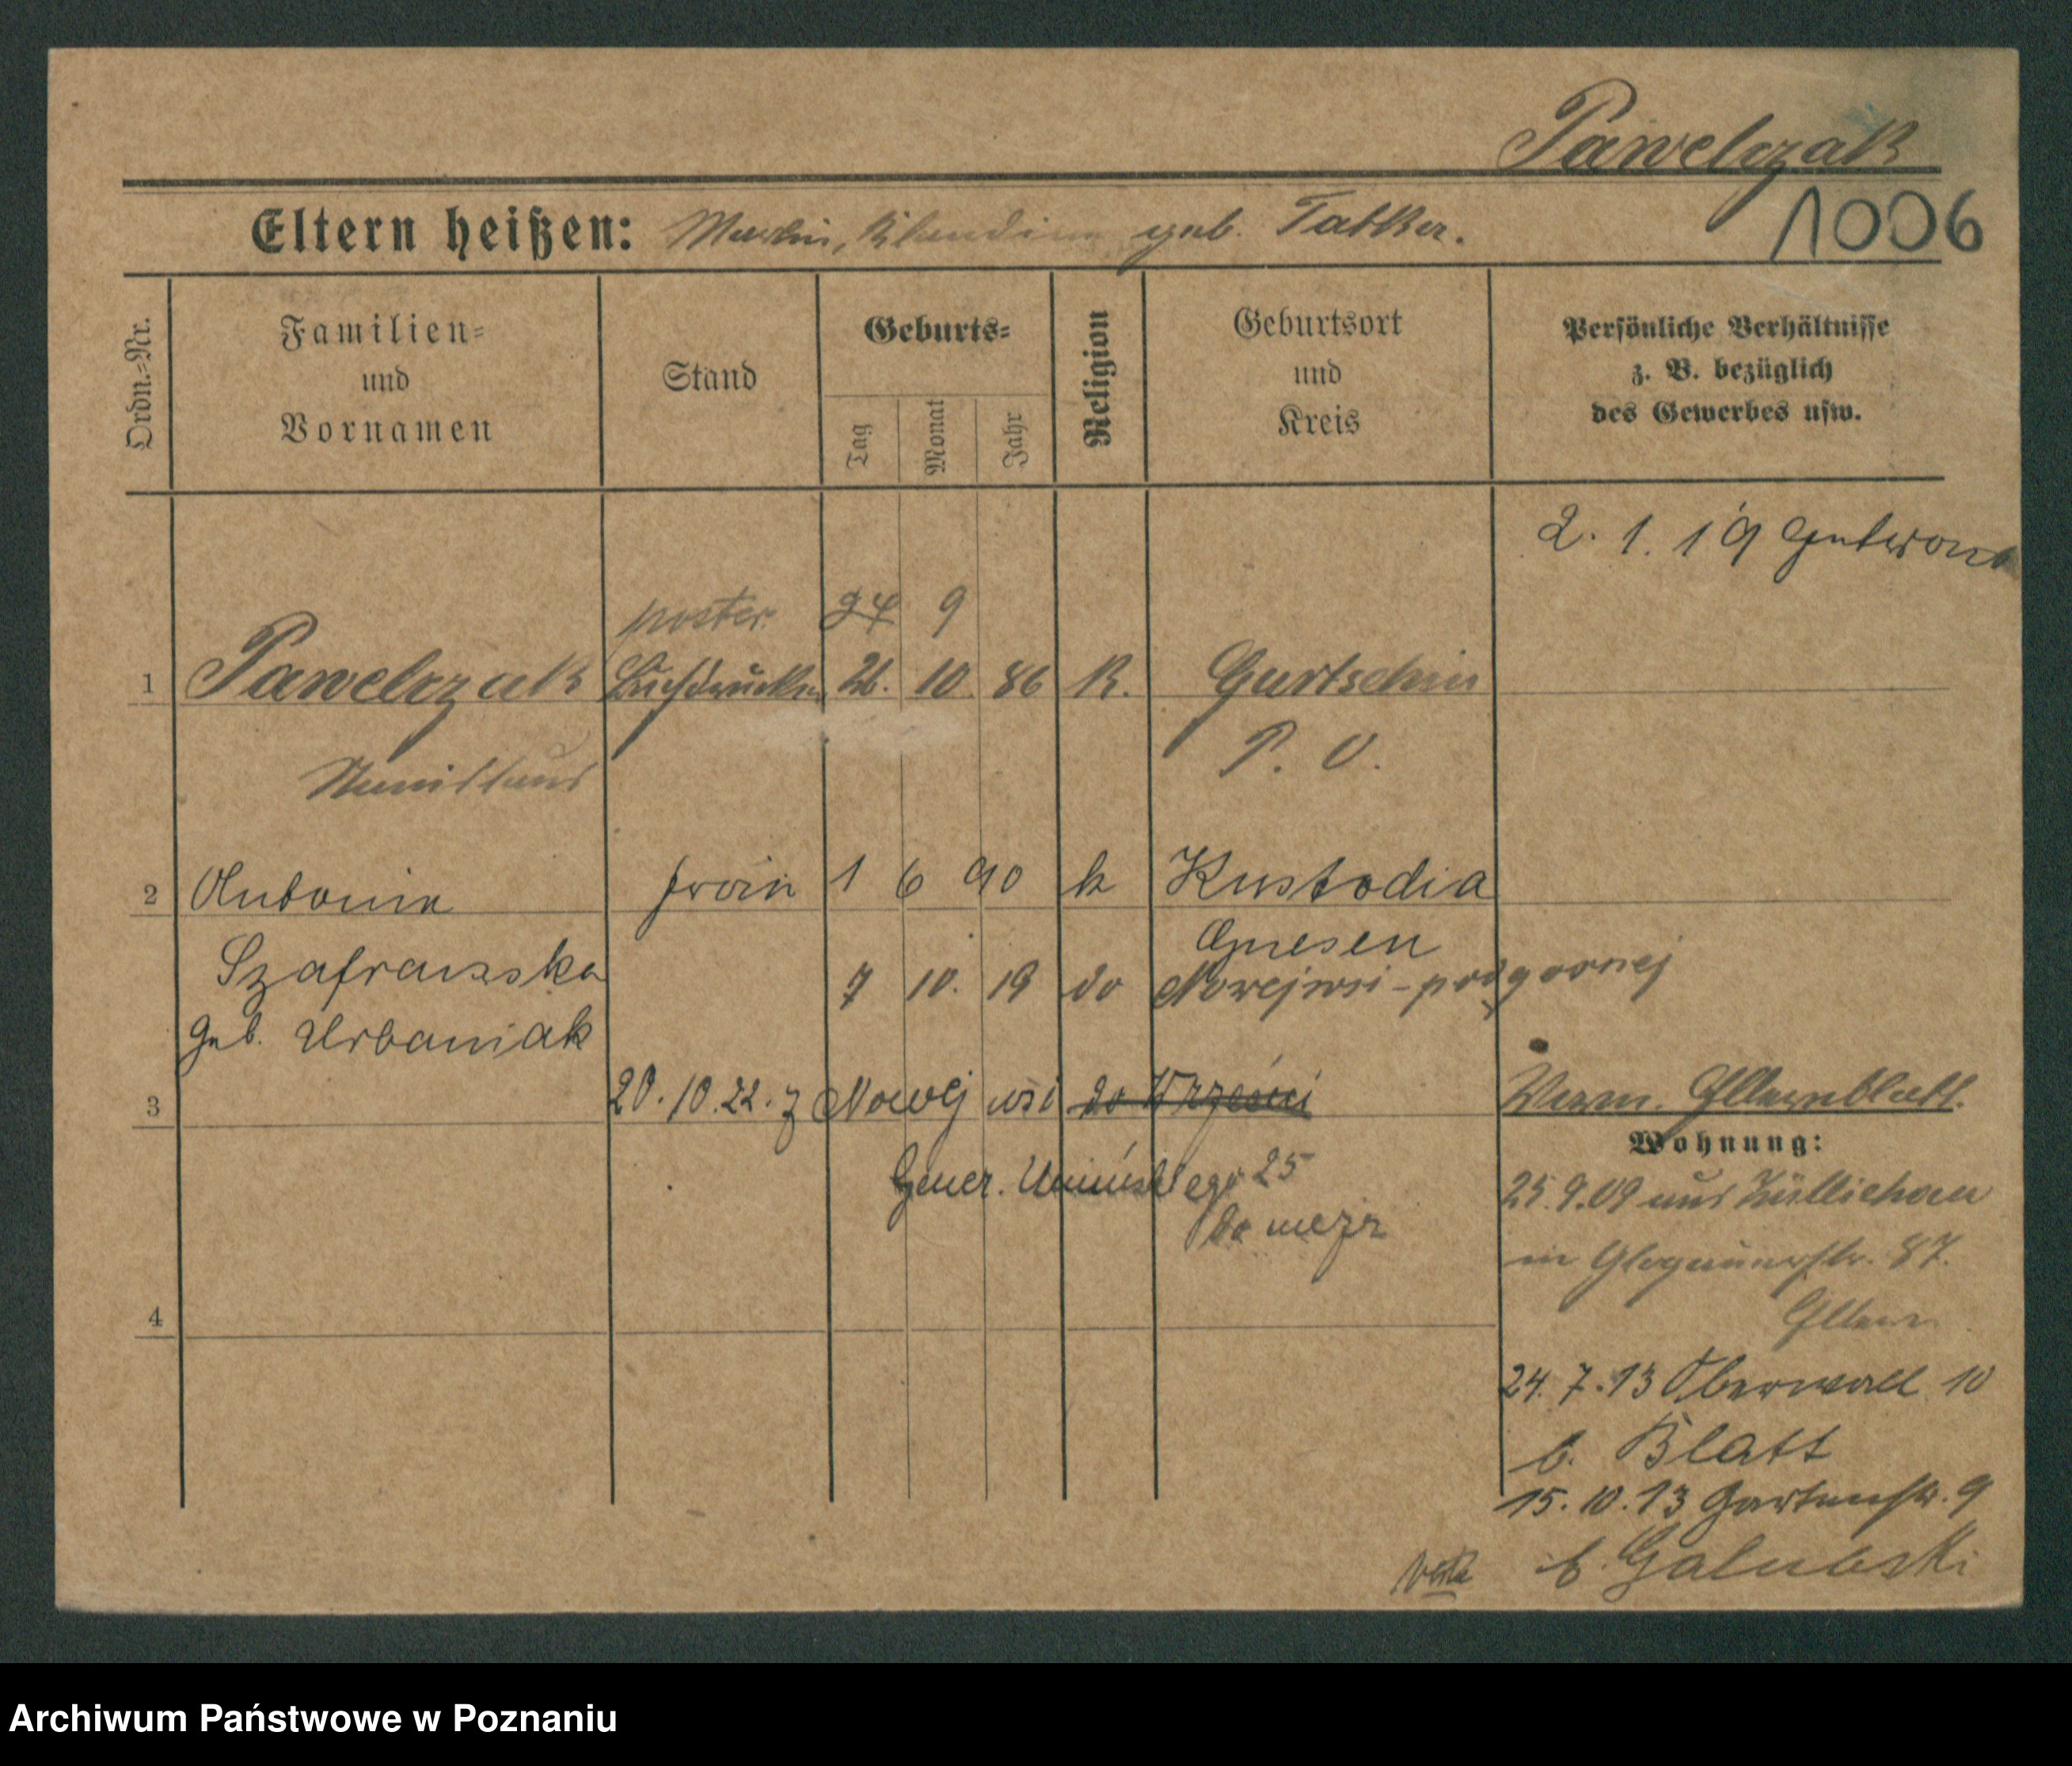 Pawelczak
1006
Eltern heißen: Martin, geb. Tatker.
Ordn.=Nr.
Familien=
und
Vornamen
Stand
Geburts=
Tag
Monat
Jahr
Religion
Geburtsort
und
Kreis
Persönliche Verhältnisse
z. B. bezüglich
des Gewerbes usw.
2. 1. 19
poster 24 9
1 Pawelczak Buchdrucker 26. 10. 86 K. Gurtschin
P. O.
Stanislaus
2 Antonie 1 6 90 k Kustodia
Gnesen
Szafranska
7 10. 19 do Nowejwsi-podgornej
geb. Urbaniak
3 20. 10. 22. z Nowej wsi do Wrześni
Gener. Umińskiego 25
do męża
4
Verm. Elternblatt.
Wohnung:
25.9.09 aus Züllichau
in Glogauerstr. 87.
Eltern
24. 7. 13 Oberwall 10
b. Blatt
15. 10. 13 Gartenstr. 9
b. Galubski